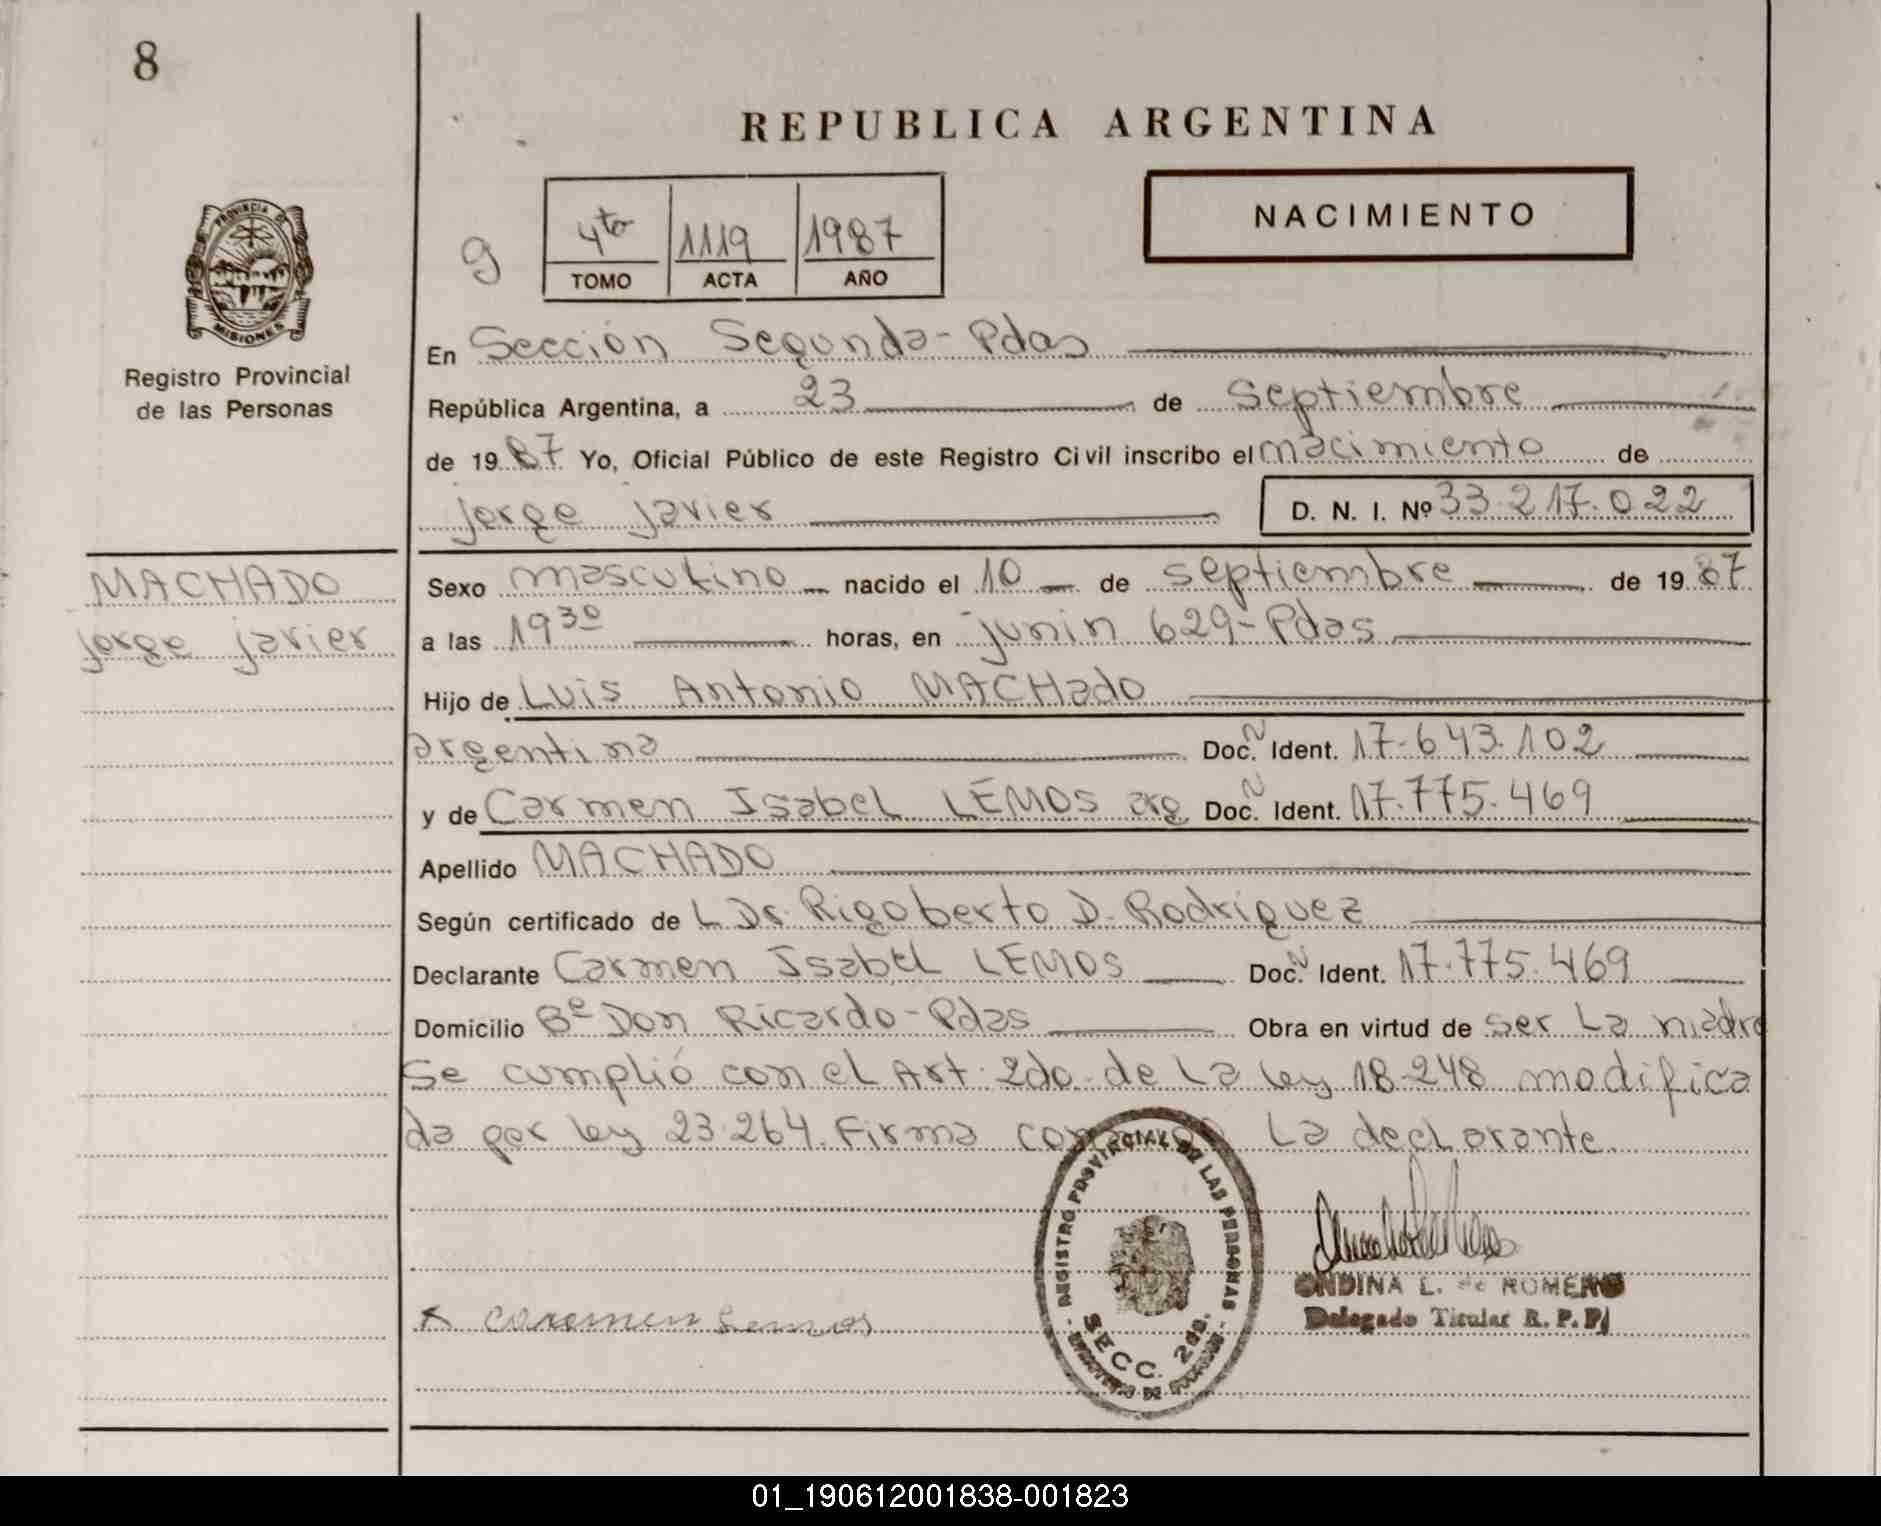 8
REPUBLICA ARGENTINA
NACIMIENTO
9
4to 1119 1987
TOMO ACTA AÑO
PROVINCIA DE
MISIONES
Registro Provincial
de las Personas
En Sección Segunda-Pdas
República Argentina, a 23 de septiembre
de 1987 Yo, Oficial Público de este Registro Civil inscribo el nacimiento de
jorge javier D. N. I. Nº 33.217.022
MACHADO
jorge javier
Sexo masculino nacido el 10 de septiembre de 1987
a las 19 30 horas, en junin 629-Pdas
Hijo de Luis Antonio MACHado
argentina Doc. N Ident. 17.643.102
y de Carmen Isabel LEMOS arg. Doc. N Ident. 17.775.469
Apellido MACHADO
Según certificado de L Dr. Rigoberto D. Rodriguez
Declarante Carmen Isabel LEMOS Doc. N Ident. 17.775.469
Domicilio Bº Don Ricardo-Pdas Obra en virtud de ser La madre
Se cumplió con el Art. 2do. de La Ley 18.248 modifica
da por Ley 23.264. Firma La declarante.
REGISTRO PROVINCIAL DE LAS PERSONAS
SECC. 2da.
ONDINA L. de ROMERO
Delegado Titular R. P. P.
x Caremen Lemos
01_190612001838-001823